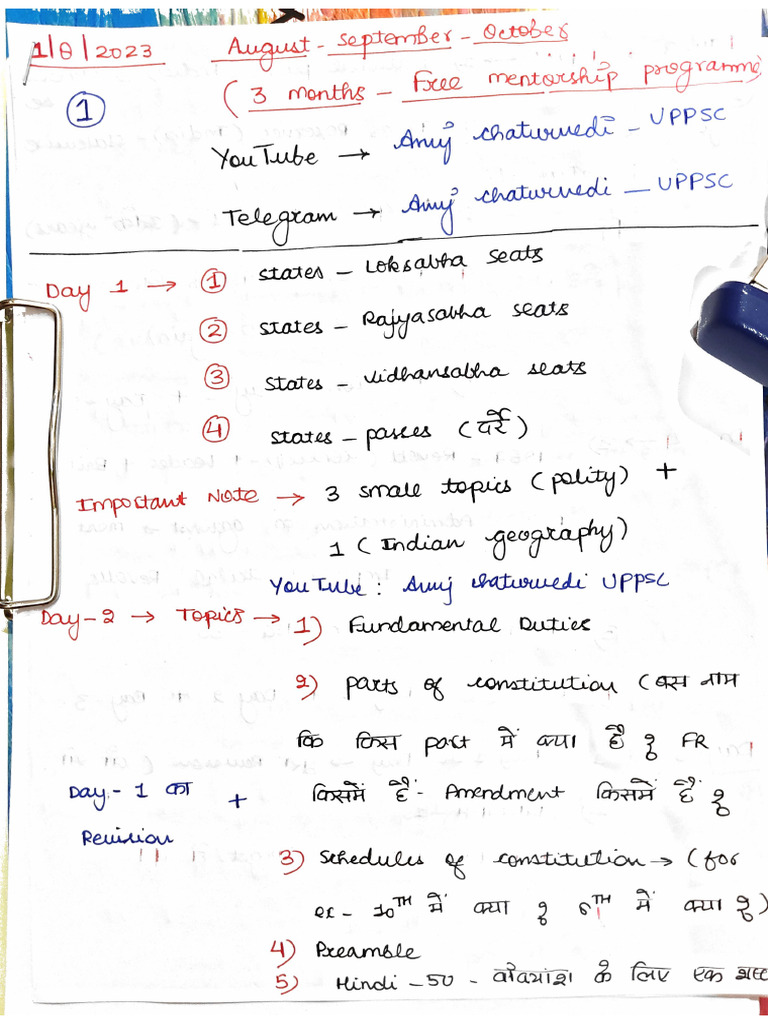 1/8/2023 August - September - October
① (3 months - Free mentorship programme)
YouTube → Anuj chaturvedi - UPPSC
Telegram → Anuj chaturvedi - UPPSC
Day 1 → ① States - Loksabha seats
② States - Rajyasabha seats
③ States - Vidhansabha seats
④ States - passes (दर्रे)
Important Note → 3 small topics (polity) +
1 (Indian geography)
YouTube : Anuj chaturvedi UPPSC
Day-2 → Topics → 1) Fundamental Duties
2) parts of constitution (बस नाम
कि किस part में क्या है ? FR
Day-1 का + किसमें है - Amendment किसमें है ?
Revision
3) Schedules of constitution → (for
ex - 10TH में क्या ? 6TH में क्या ?)
4) Preamble
5) Hindi - 50 - वाक्यांश के लिए एक शब्द